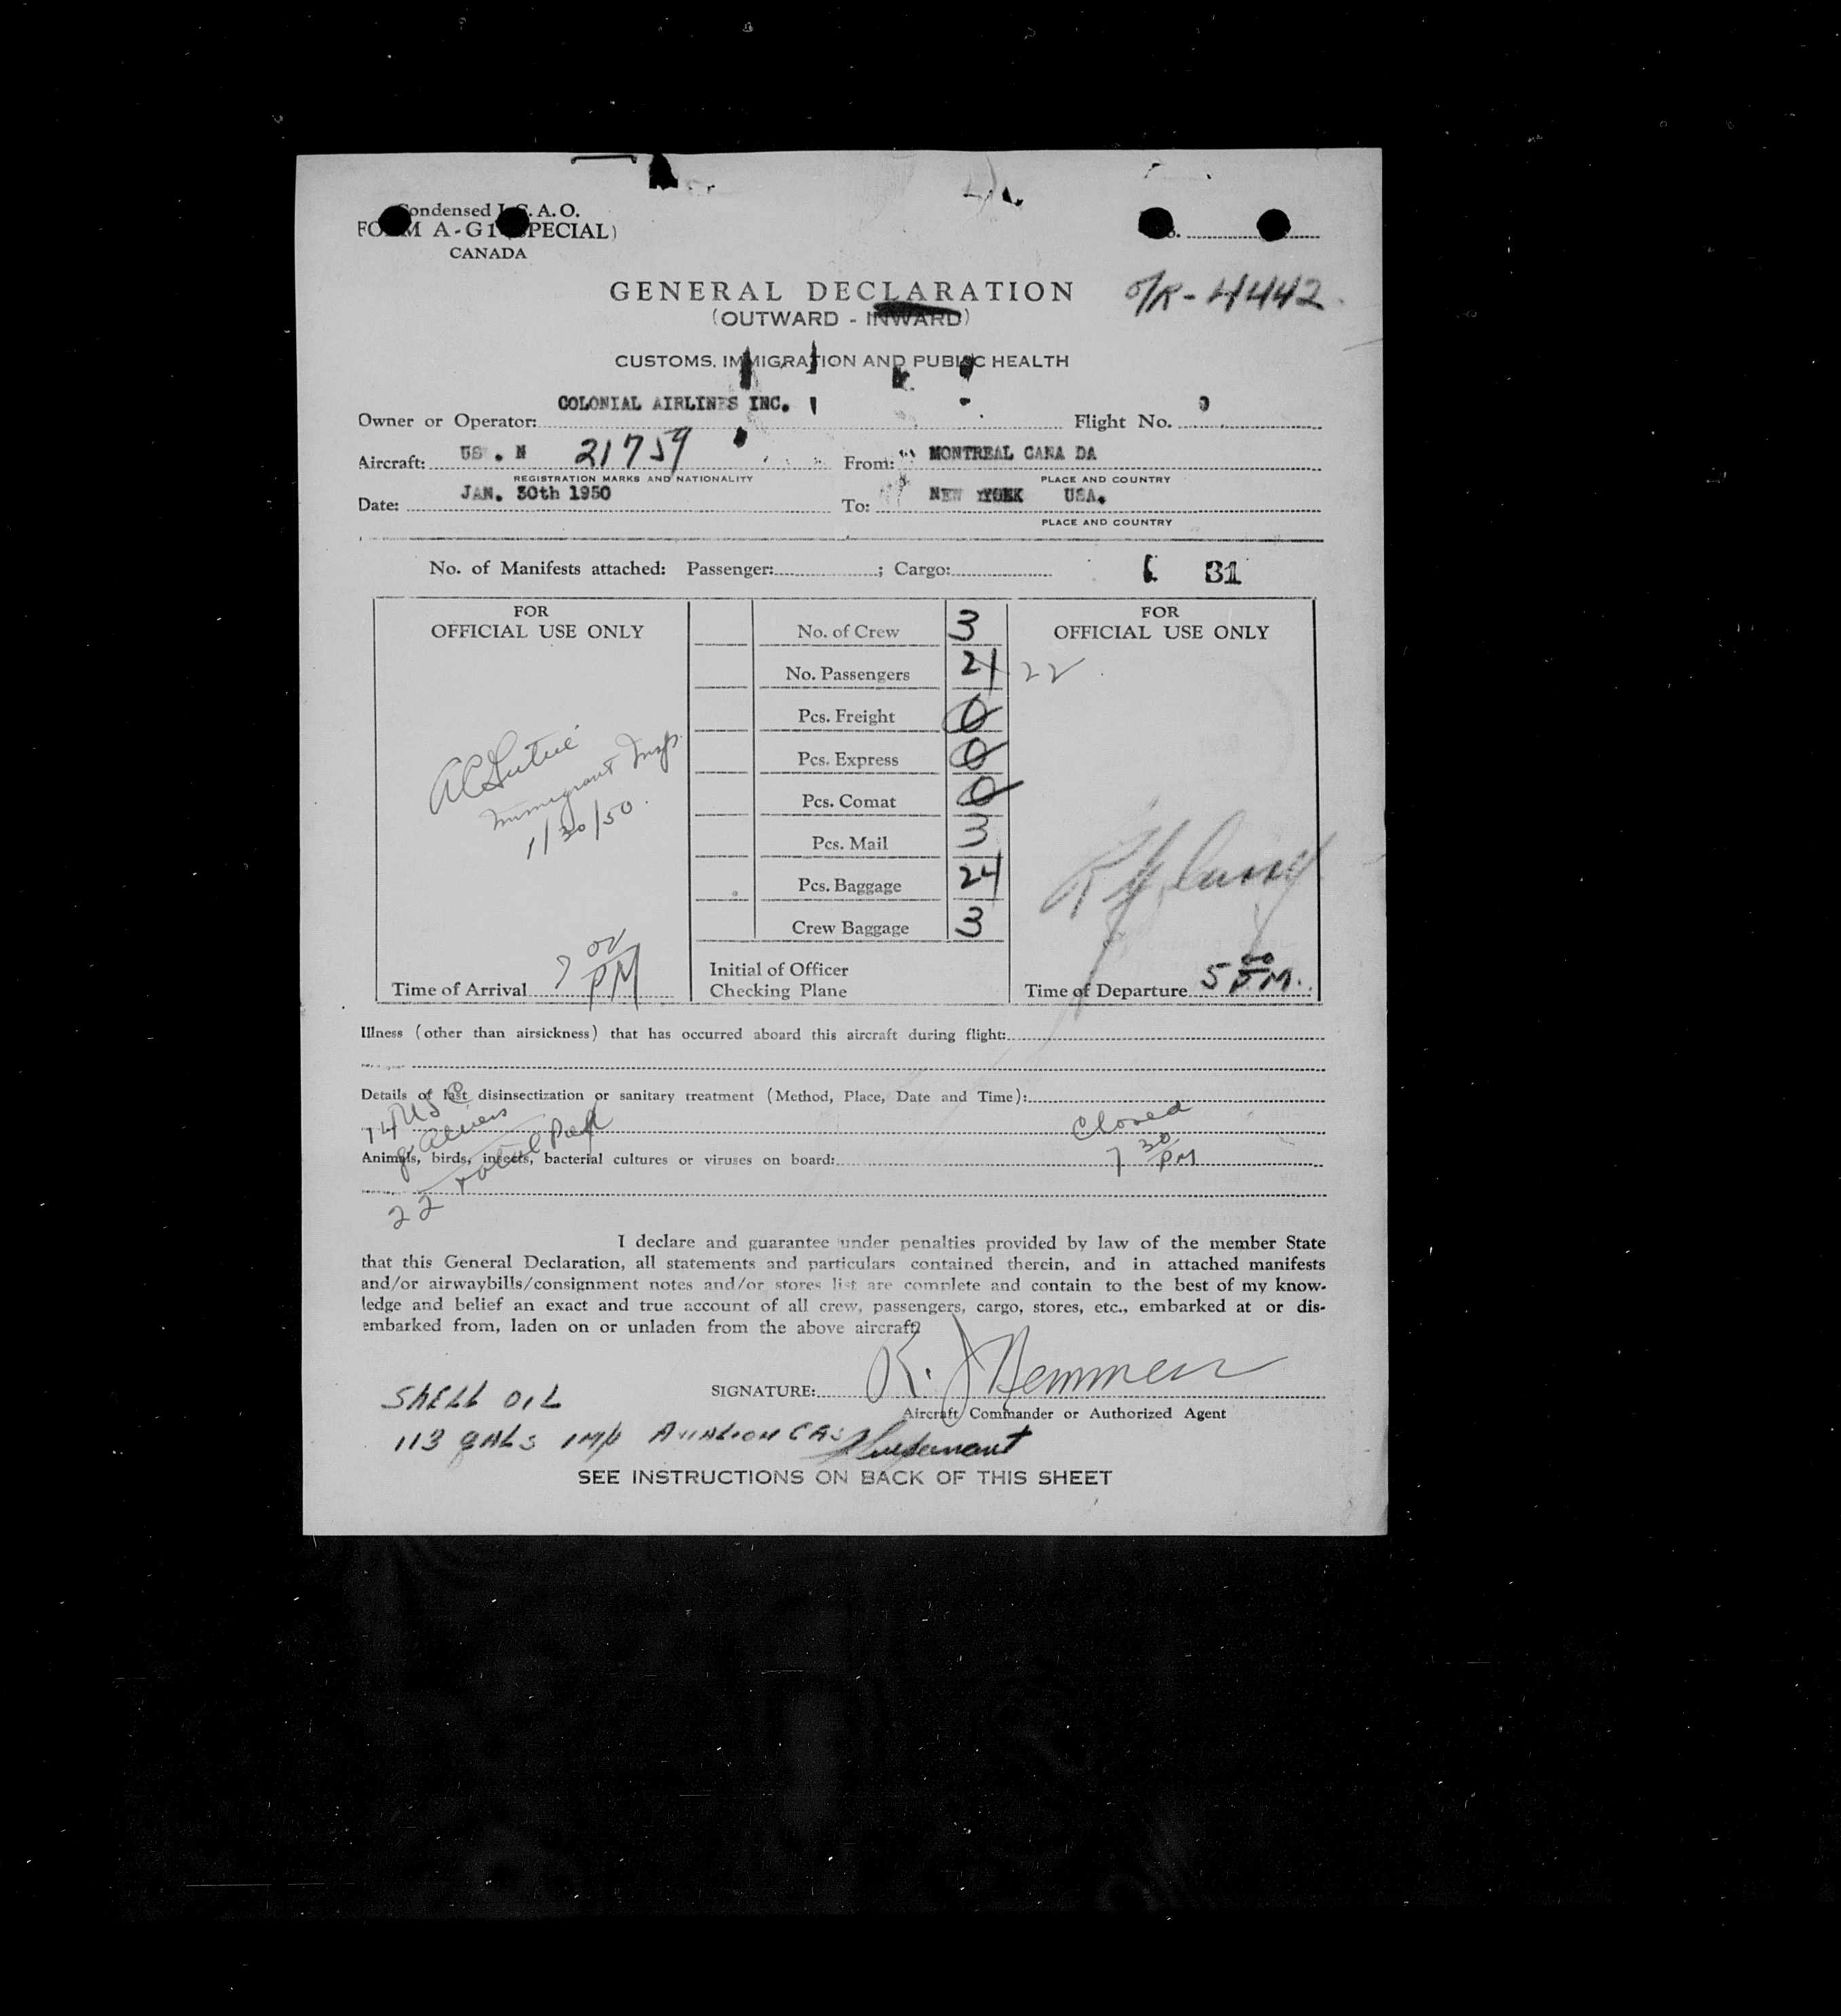 Condensed I.C.A.O.
FORM A-G1 (SPECIAL)
CANADA
No.
GENERAL DECLARATION
O/R-4442.
(OUTWARD - INWARD)
CUSTOMS, IMMIGRATION AND PUBLIC HEALTH
Owner or Operator: COLONIAL AIRLINES INC. Flight No.
Aircraft: US . N 21759 From: MONTREAL CANA DA
REGISTRATION MARKS AND NATIONALITY PLACE AND COUNTRY
Date: JAN. 30th 1950 To: NEW YYORK USA.
PLACE AND COUNTRY
No. of Manifests attached: Passenger: ; Cargo: 31
FOR
OFFICIAL USE ONLY
Immigrant Insp.
1/30/50.
Time of Arrival 7 00 PM
No. of Crew 3
No. Passengers 21 22
Pcs. Freight 0
Pcs. Express 0
Pcs. Comat 0
Pcs. Mail 3
Pcs. Baggage 24
Crew Baggage 3
Initial of Officer
Checking Plane
FOR
OFFICIAL USE ONLY
Time of Departure 5 00 P.M.
Illness (other than airsickness) that has occurred aboard this aircraft during flight:
Details of last disinsectization or sanitary treatment (Method, Place, Date and Time):
14 USC
8 Aliens
22 total
Closed
7 30 PM
Animals, birds, insects, bacterial cultures or viruses on board:
I declare and guarantee under penalties provided by law of the member State
that this General Declaration, all statements and particulars contained therein, and in attached manifests
and/or airwaybills/consignment notes and/or stores list are complete and contain to the best of my know-
ledge and belief an exact and true account of all crew, passengers, cargo, stores, etc., embarked at or dis-
embarked from, laden on or unladen from the above aircraft.
SIGNATURE: R. J
Aircraft Commander or Authorized Agent
SHELL OIL
113 GALS IMP AVIATION GAS
SEE INSTRUCTIONS ON BACK OF THIS SHEET